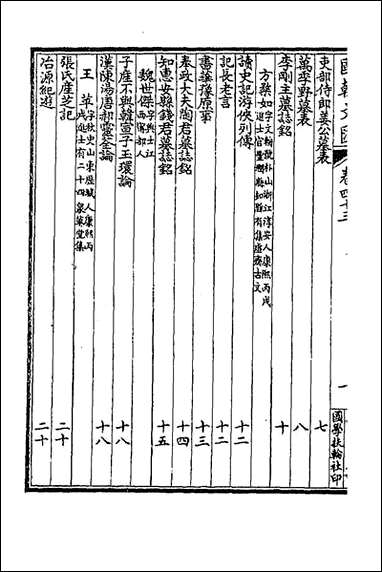 國朝文匯 卷四十三 一 國學扶輪社印
吏部侍郎姜公墓表 七
萬季野墓表 八
李剛主墓誌銘 十
方楘如 字文輈號朴山浙江淳安人康熙丙戌進士官豐潤縣知縣有集虛齋古文
讀史記游俠列傳 十二
記長老言 十二
書讓豫原事 十三
奉政大夫陶君墓誌銘 十四
知惠安縣錢君墓誌銘 十五
魏世傑 字興士江西寧都人
子產不與韓宣子玉環論 十八
漢陳湯唐郝靈荃論 十八
王苹 字秋史山東歷城人康熙丙戌進士有二十四泉草堂集
張氏崖芝記 二十
冶源紀遊 二十